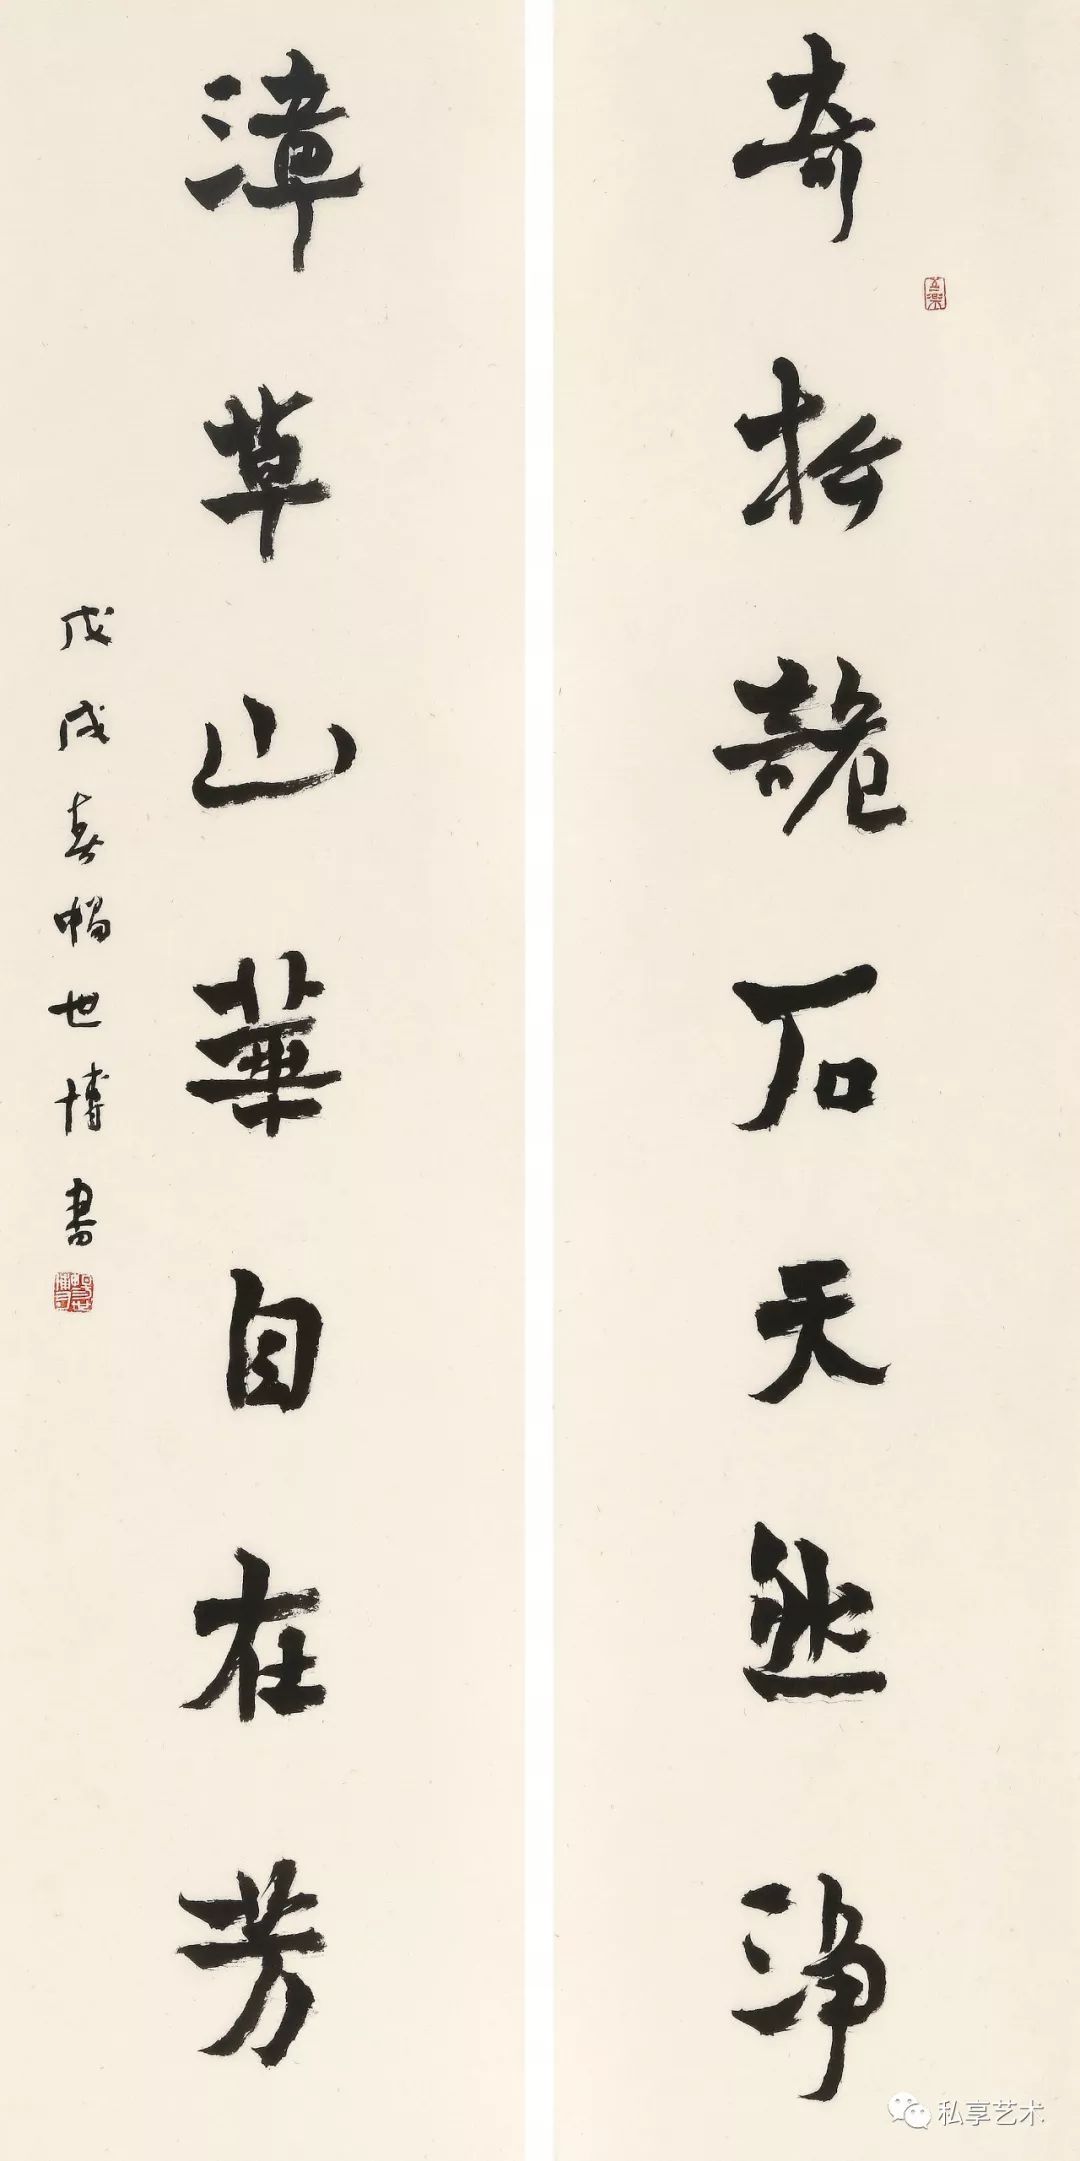 奇松詭石天然淨
漳草山華自在芳
戊戌春暢世博書
私享艺术